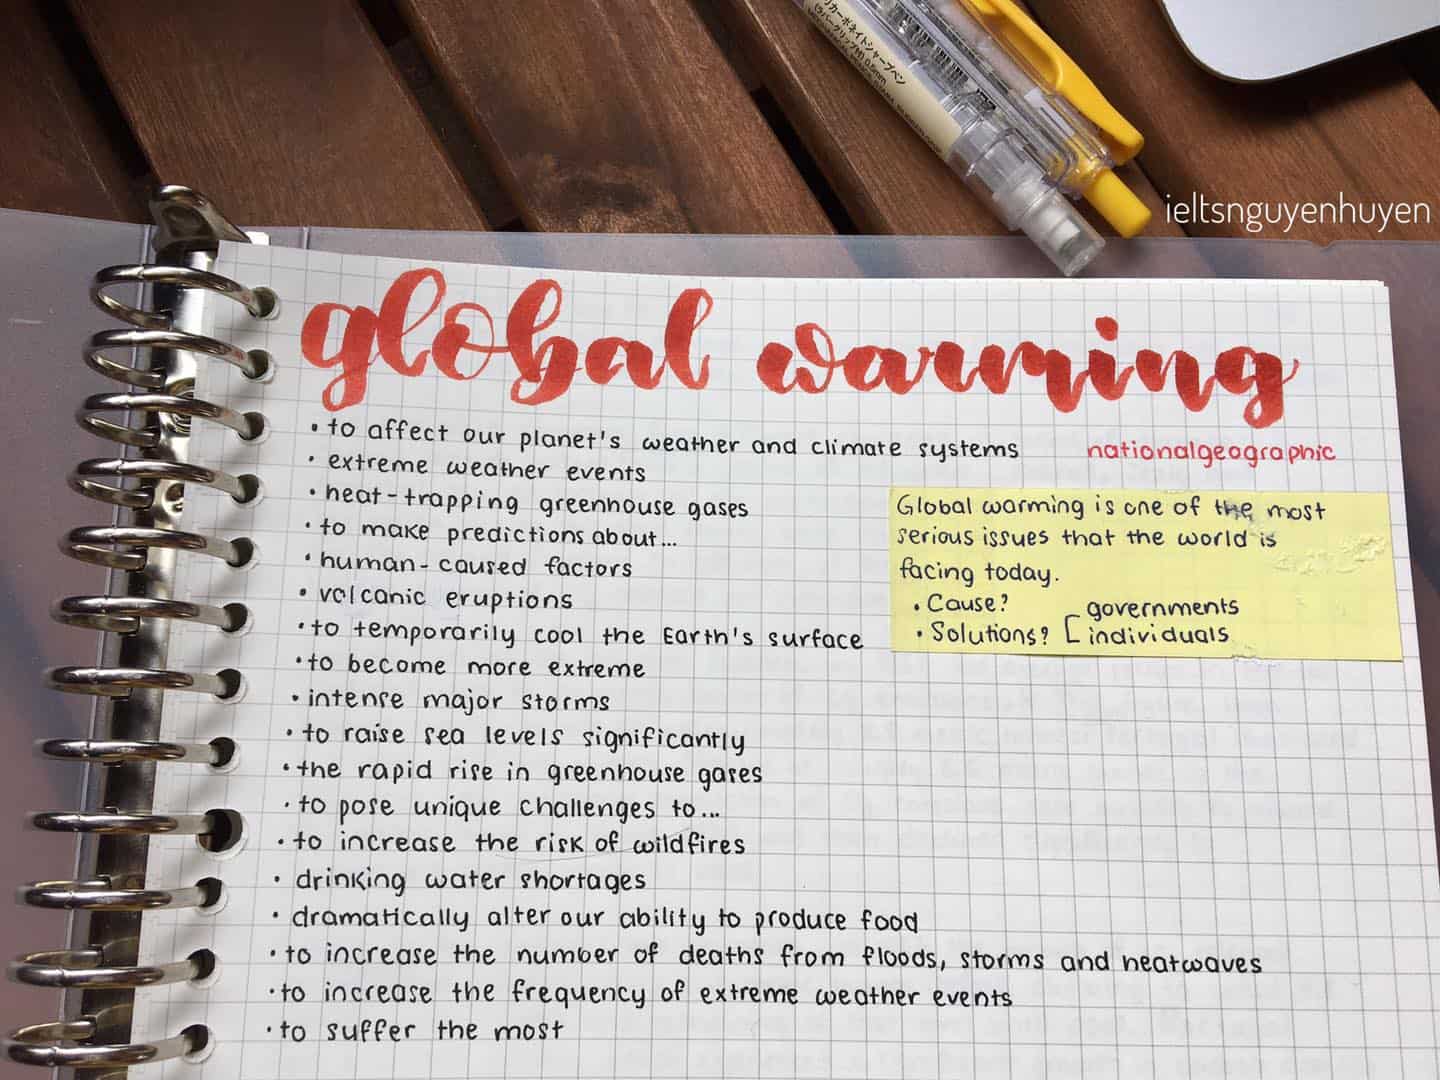 リカーボネイトシャープペン
(ラバーグリップ付) 0.5mm
ieltsnguyenhuyen
global warming
• to affect our planet's weather and climate systems
nationalgeographic
• extreme weather events
• heat-trapping greenhouse gases
• to make predictions about...
• human-caused factors
• volcanic eruptions
• to temporarily cool the Earth's surface
• to become more extreme
• intense major storms
• to raise sea levels significantly
• the rapid rise in greenhouse gases
• to pose unique challenges to...
• to increase the risk of wildfires
• drinking water shortages
• dramatically alter our ability to produce food
• to increase the number of deaths from floods, storms and heatwaves
• to increase the frequency of extreme weather events
• to suffer the most
Global warming is one of the most
serious issues that the world is
facing today.
• Cause?
• Solutions? [ governments
individuals